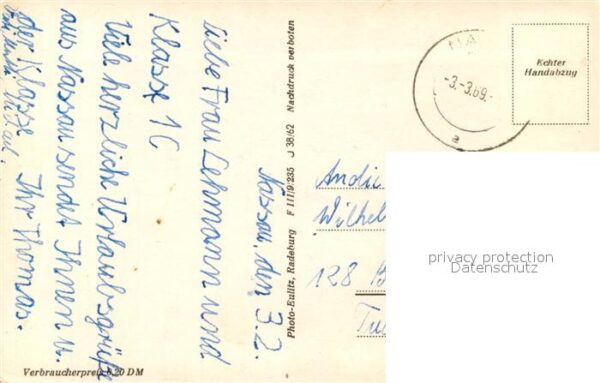 Nassau, den 3.2.
Liebe Frau Lehmann und
Klasse 1C
Viele herzliche Urlaubsgrüße
aus Nassau sendet Ihnen u.
der Klasse Ihr Thomas.
Photo-Eulitz, Radeburg F 111/9/235 J 38/62 Nachdruck verboten
-3.-3.69.-
a
Echter
Handabzug
An die
128
privacy protection
Datenschutz
Verbraucherpreis 0,20 DM